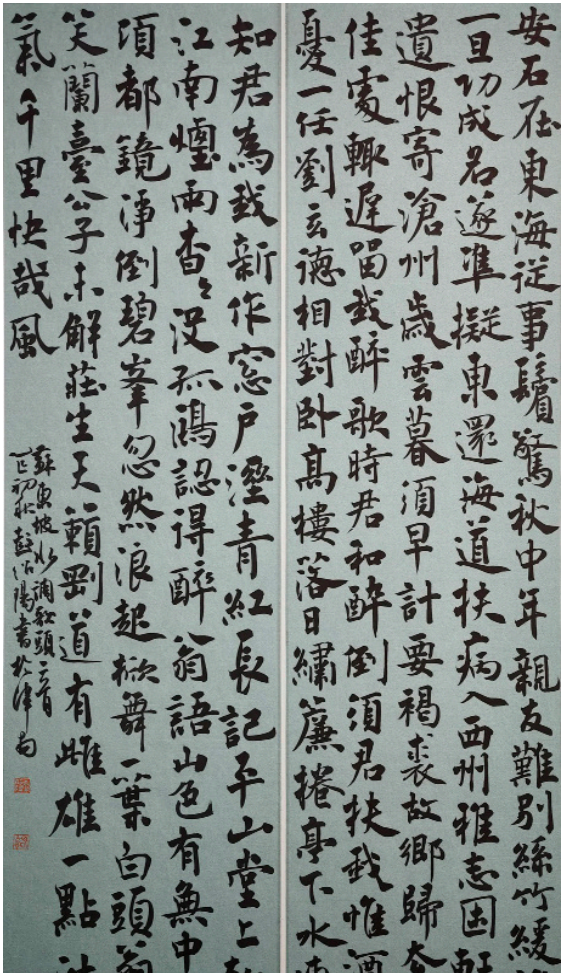 安石在東海從事鬢驚秋中年親友難別絲竹緩
一旦功成名遂準擬東還海道扶病入西州雅志困軒
遺恨寄滄州歲雲暮須早計要褐裘故鄉歸去
佳處輒遲留我醉歌時君和醉倒須君扶我惟酒
憂一任劉玄德相對臥高樓落日繡簾捲亭下水連
知君為我新作窗戶溼青紅長記平山堂上
江南煙雨杳〻沒孤鴻認得醉翁語山色有無中
頃都鏡淨倒碧峯忽然浪起掀舞一葉白頭翁
笑蘭臺公子未解莊生天籟剛道有雌雄一點浩
氣千里快哉風
蘇東坡水調歌頭二首
初秋 書於津南